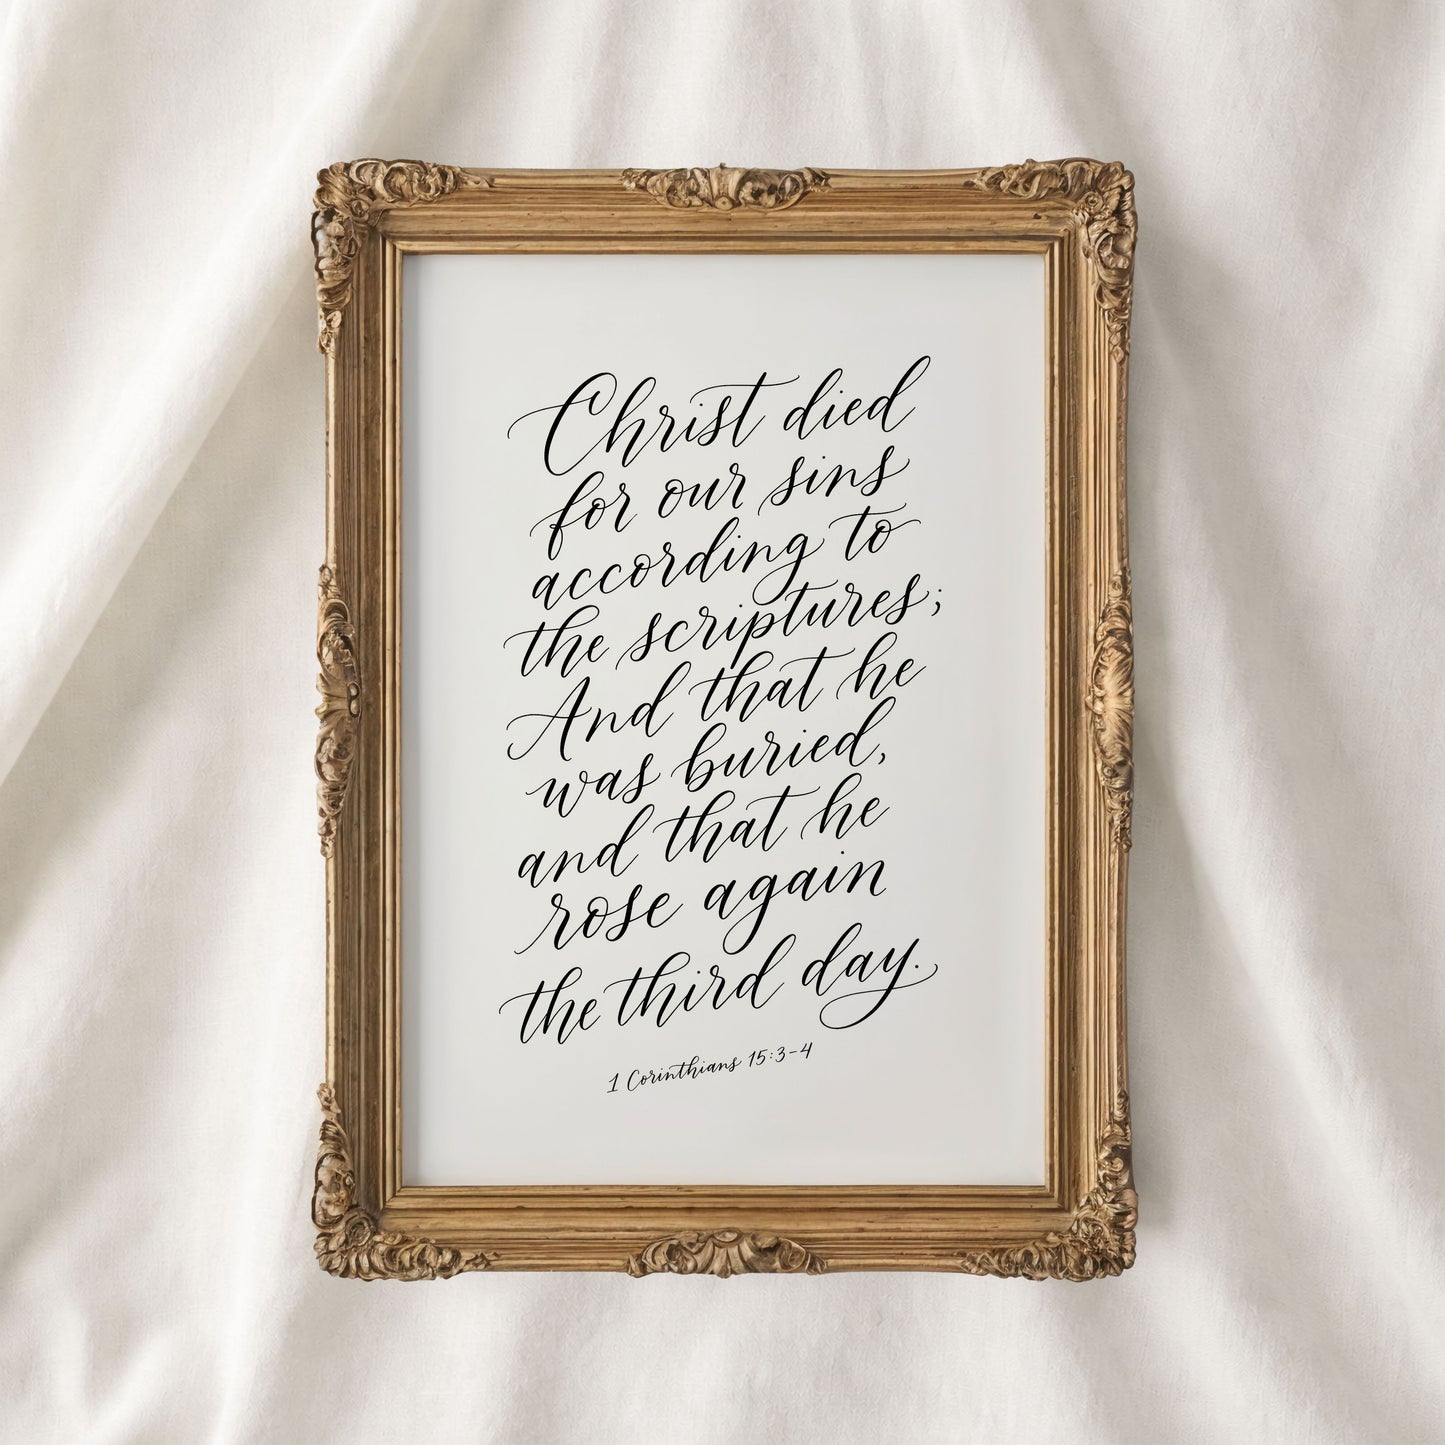 Christ died
for our sins
according to
the scriptures;
And that he
was buried,
and that he
rose again
the third day.
1 Corinthians 15:3-4